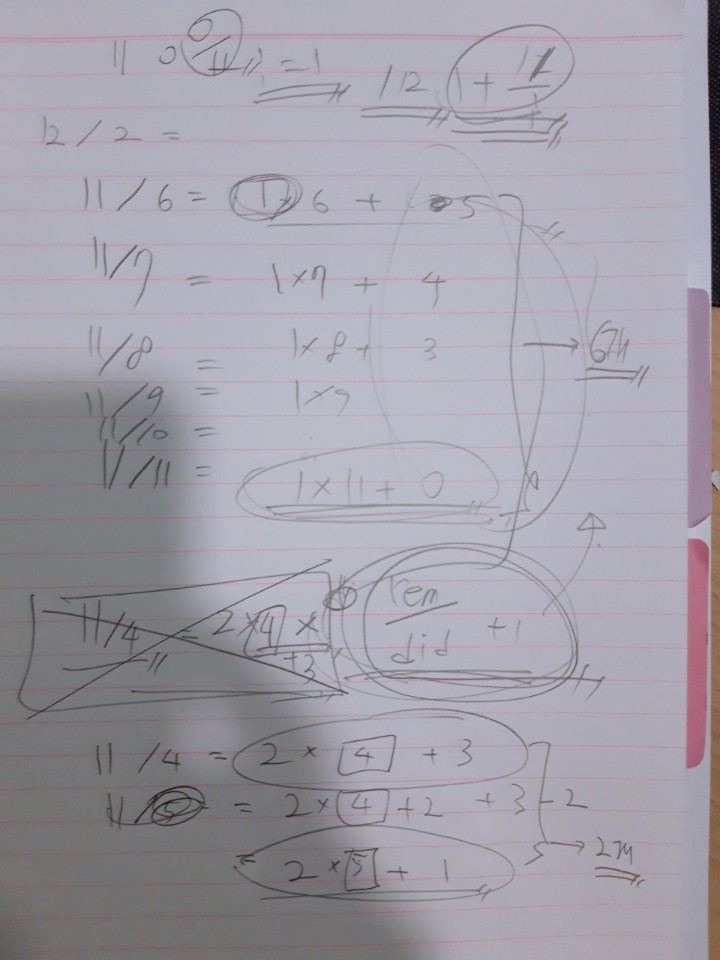 11 0 0/11 = 1 112 1 + 12/1
12 / 2 =
11 / 6 = 1 × 6 + 5
11/7 = 1×7 + 4
11/8 = 1×8 + 3 → 6개
11/9 = 1×9
11/10 =
11/11 = 1×11 + 0
11/4 = 2×4 × +3 rem/did +1
11 /4 = 2 × 4 + 3
11/5 = 2×4 +2 +3 -2
= 2×5 + 1 → 2개